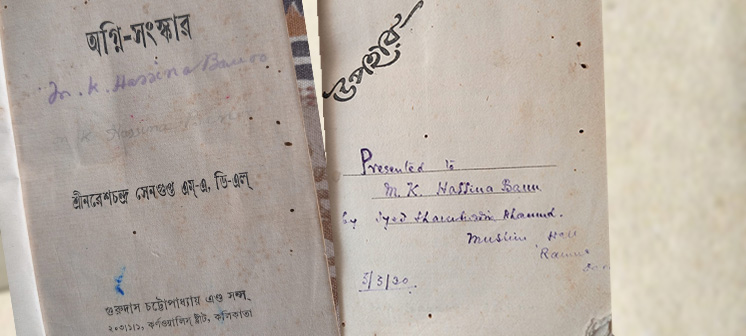 অগ্নি-সংস্কার
M. K. Hassina Banoo
M K Hossina
শ্রীনরেশচন্দ্র সেনগুপ্ত এম্-এ, ডি-এল্
গুরুদাস চট্টোপাধ্যায় এণ্ড সন্স্
২০৩।১।১, কর্ণওয়ালিস্ ষ্ট্রীট, কলিকাতা
উপহার
Presented to
M. K. Hassina Banu
by Syed
Muslim Hall
Ramna
5/3/30